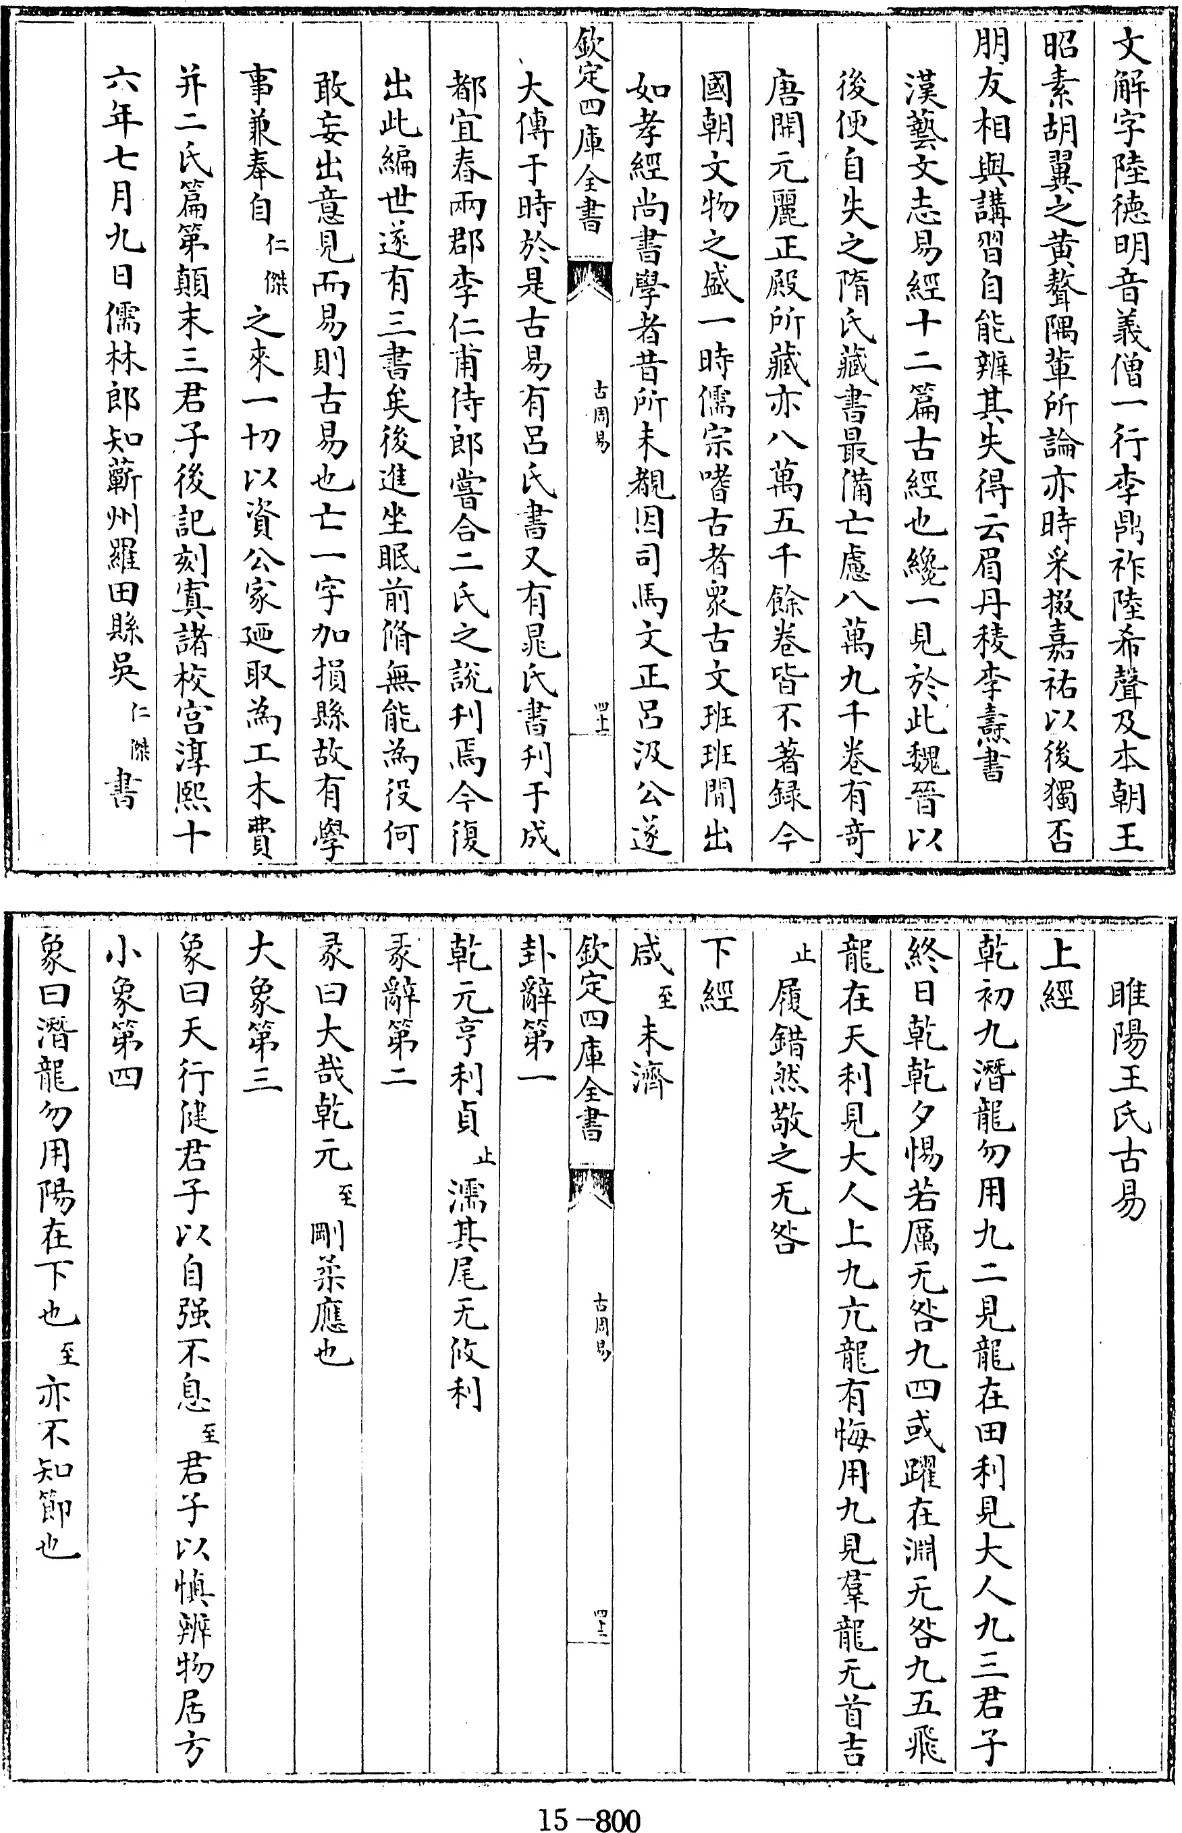 文解字陸德明音義僧一行李鼎祚陸希聲及本朝王
昭素胡翼之黄聱隅輩所論亦時采掇嘉祐以後獨否
朋友相與講習自能辨其失得云眉丹稜李燾書
漢藝文志易經十二篇古經也纔一見於此魏晉以
後便自失之隋氏藏書最備亡慮八萬九千卷有奇
唐開元麗正殿所藏亦八萬五千餘卷皆不著録今
國朝文物之盛一時儒宗嗜古者衆古文班班閒出
如孝經尚書學者昔所未覩因司馬文正呂汲公遂
欽定四庫全書 古周易 四十一
大傳于時於是古易有呂氏書又有晁氏書刋于成
都宜春兩郡李仁甫侍郎嘗合二氏之說刋焉今復
出此編世遂有三書矣後進坐眠前脩無能為役何
敢妄出意見而易則古易也亡一字加損縣故有學
事兼奉自仁傑之來一切以資公家廼取為工木費
并二氏篇第顛末三君子後記刻寘諸校宫淳熙十
六年七月九日儒林郎知蘄州羅田縣吳仁傑書
睢陽王氏古易
上經
乾初九潛龍勿用九二見龍在田利見大人九三君子
終日乾乾夕惕若厲无咎九四或躍在淵无咎九五飛
龍在天利見大人上九亢龍有悔用九見羣龍无首吉
止履錯然敬之无咎
下經
咸至未濟
欽定四庫全書 古周易 四十二
卦辭第一
乾元亨利貞止濡其尾无攸利
彖辭第二
彖曰大哉乾元至剛柔應也
大象第三
象曰天行健君子以自强不息至君子以慎辨物居方
小象第四
象曰潛龍勿用陽在下也至亦不知節也
15-800